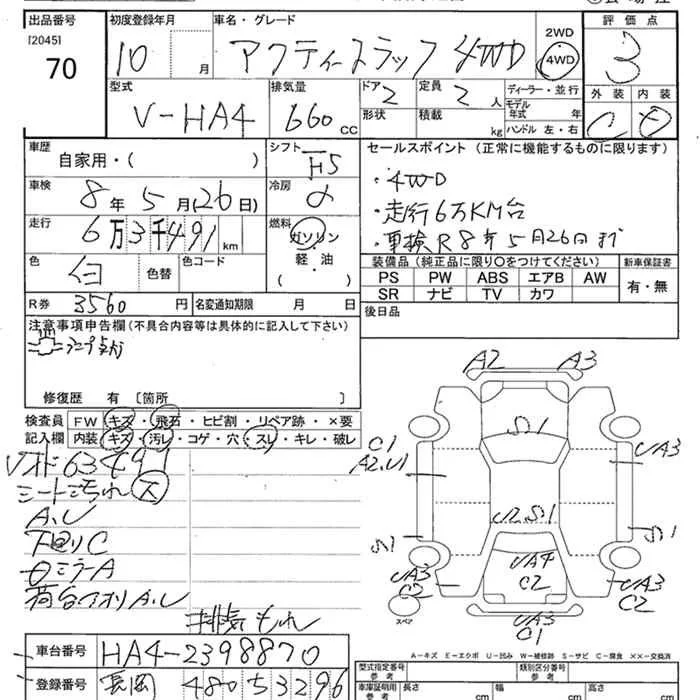 出品番号
[2045]
70
初度登録年月
10 月
車名・グレード
アクティートラック 4WD
2WD
4WD
評価点
3
外装 内装
C D
型式
V-HA4
排気量
660 CC
ドア
2
定員
2 人
形状
積載
kg
ディーラー・並行
モデル年式 年
ハンドル 左・右
車歴
自家用・( )
シフト
H5
セールスポイント (正常に機能するものに限ります)
・4WD
・走行6万KM台
・車検R8年5月26日まで
車検
8年5月(26日)
冷房
走行
6万3千491km
燃料
ガソリン
軽・油
( )
色
白
色替
色コード
装備品(純正品に限り○をつけてください)
新車保証書
PS PW ABS エアB AW
SR ナビ TV カワ
有・無
R券 3560 円
名変通知期限 月 日
後日品
注意事項申告欄(不具合内容等は具体的に記入して下さい)
修復歴 有 [箇所 ]
検査員記入欄
FW キズ・飛石・ヒビ割・リペア跡・×要
内装 キズ・汚レ・コゲ・穴・スレ・キレ・破レ
63491
シートよごれ 大
A.U
下回りC
ミラーA
荷台アオリA.U
排気もれ
A2 A3
S1
C1
A2.U1
UA3
U2S1
S1
S1
UA4
C2
UA3
C2
UA3
C2
UA3
C1
スペア
A-キズ E-エクボ U-凹み W-補修跡 S-サビ C-腐食 ××-交換済
車台番号 HA4-2398870
登録番号 長岡 480 5 3296
型式指定番号
参考
類別区分番号
参考
車庫証明用
参考
長さ cm
幅 cm
高さ cm